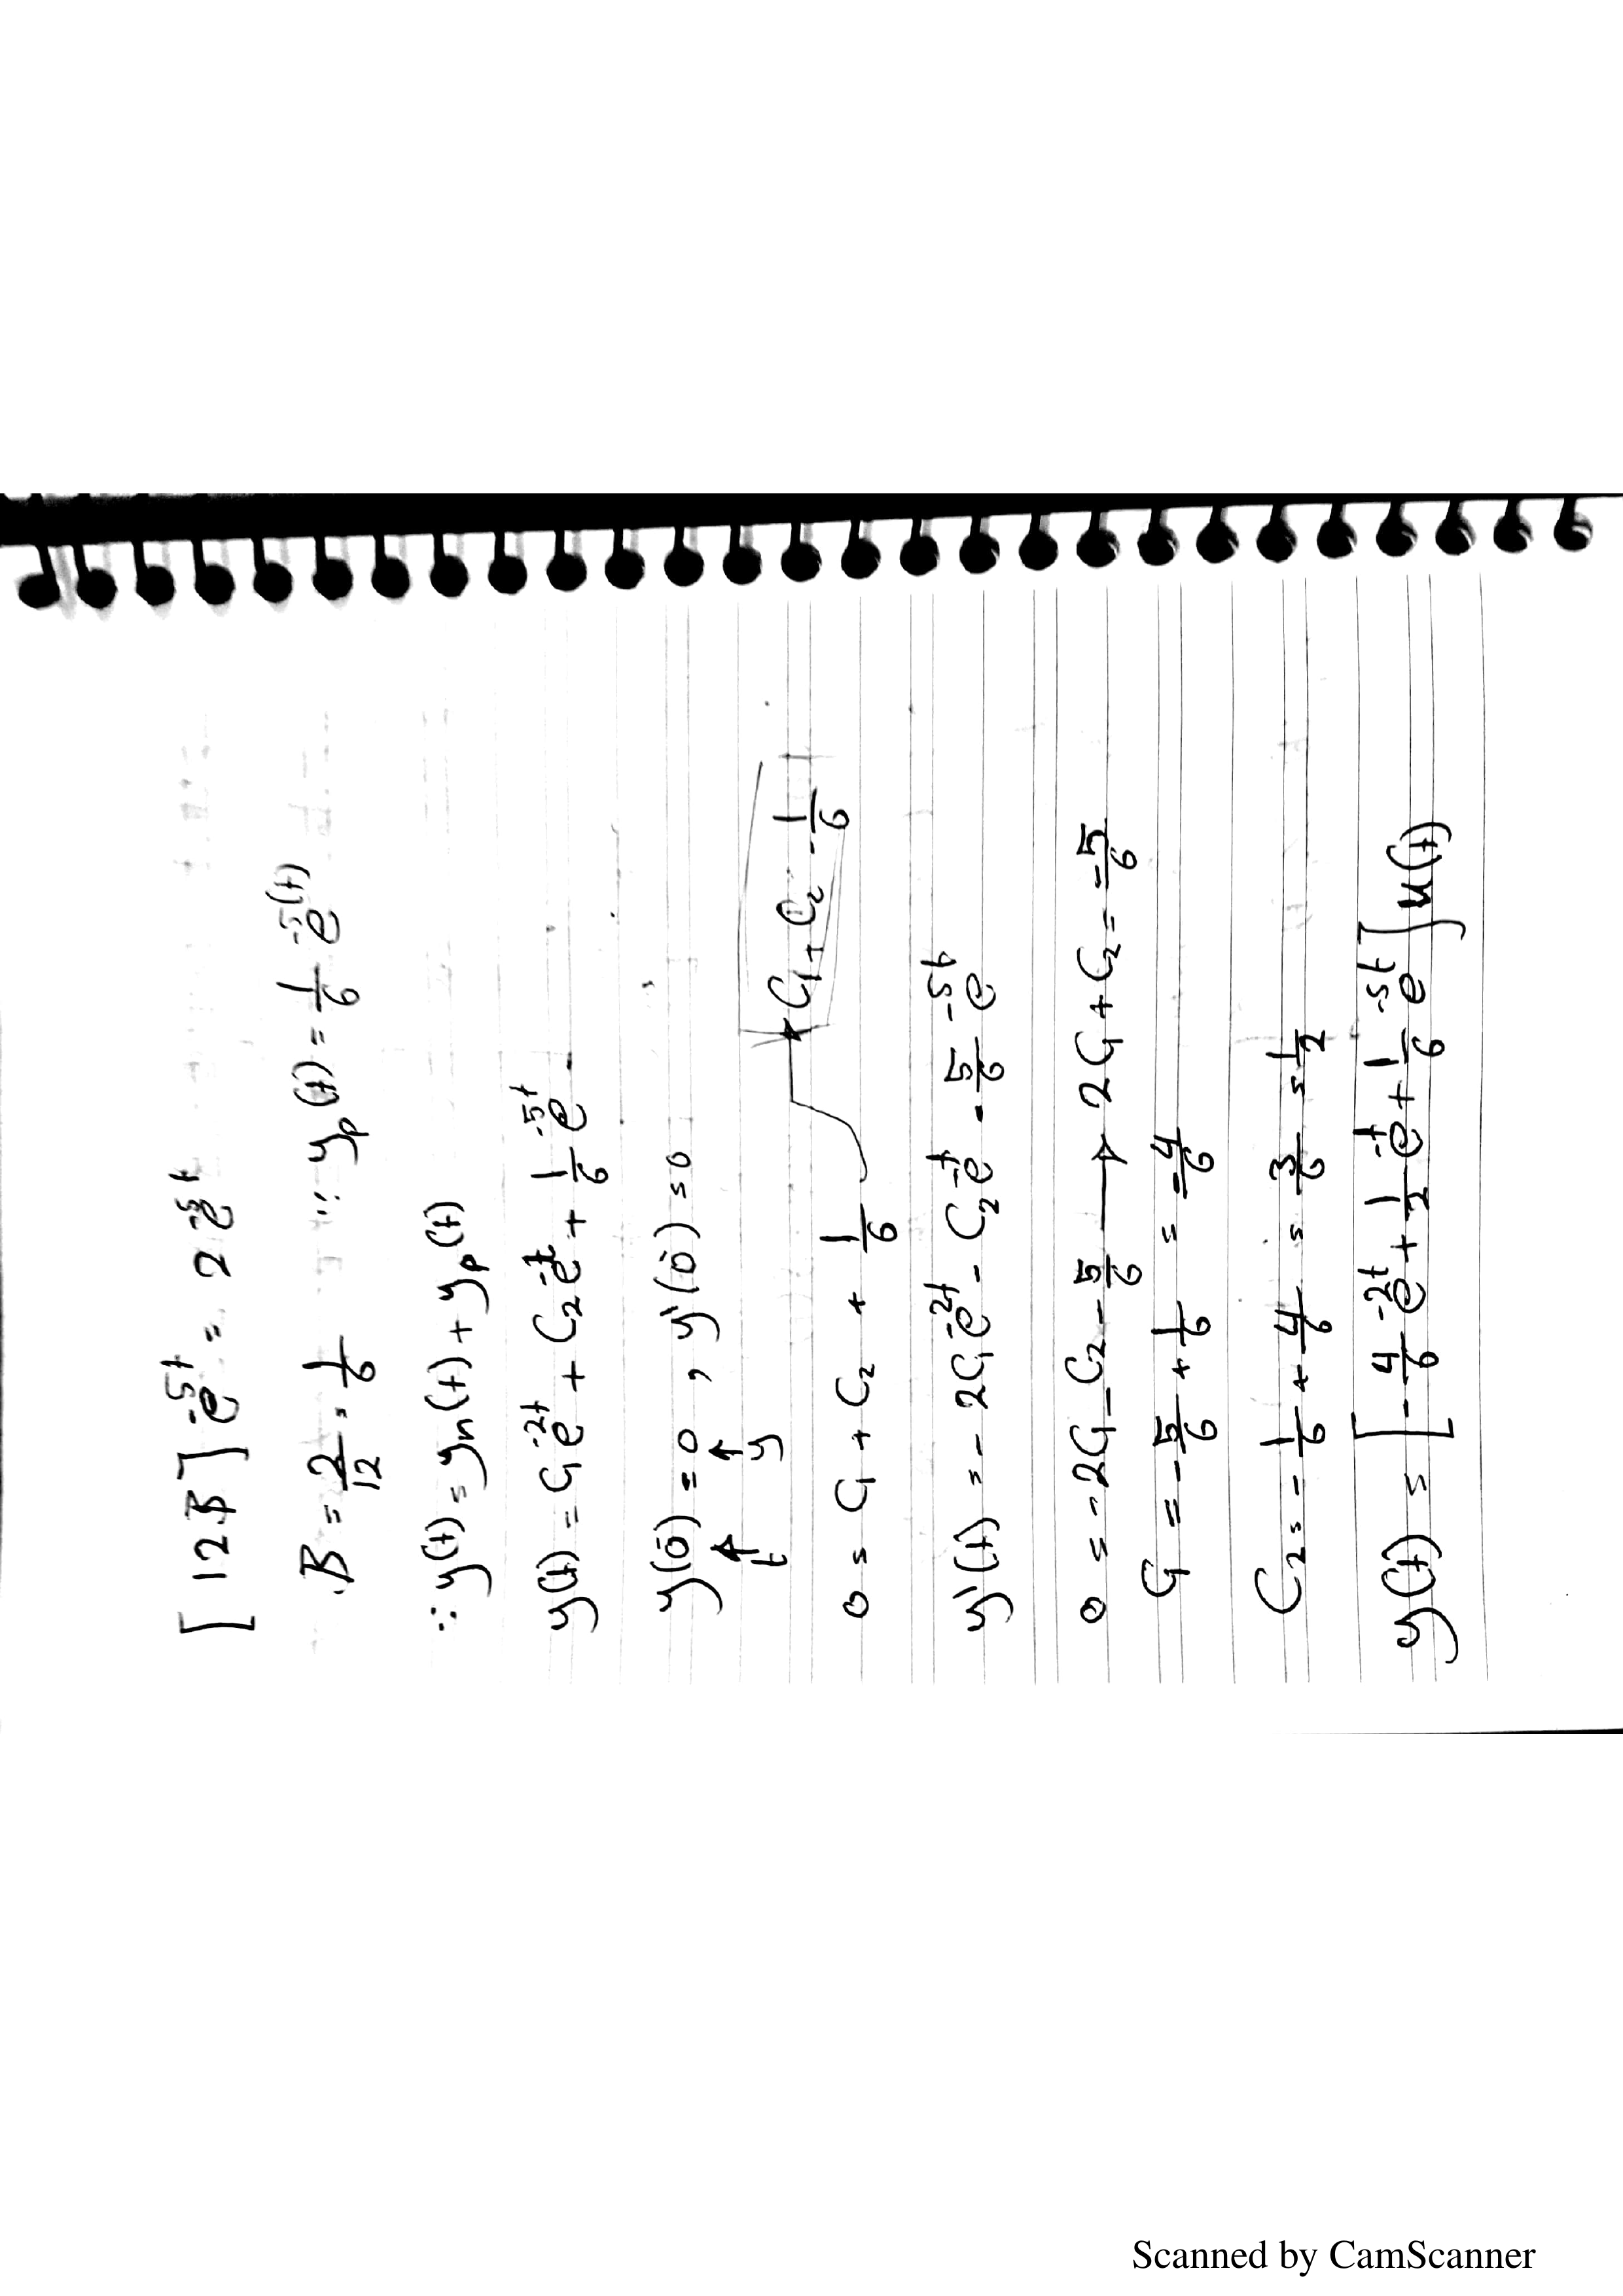 [12B] e^{-5t} = 2 e^{-5t}
B = 2/12 = 1/6 ∵ y_p(t) = 1/6 e^{-5(t)}
∵ y(t) = y_n(t) + y_p(t)
y(t) = C₁e^{-2t} + C₂e^{-t} + 1/6 e^{-5t}
y(0⁻) = 0 , y'(0⁻) = 0
↑ ↑
t y
0 = C₁ + C₂ + 1/6 → C₁ + C₂ = -1/6
y'(t) = -2C₁e^{-2t} - C₂e^{-t} - 5/6 e^{-5t}
0 = -2C₁ - C₂ - 5/6 → 2C₁ + C₂ = -5/6
C₁ = -5/6 + 1/6 = -4/6
C₂ = -1/6 + 4/6 = 3/6 = 1/2
y(t) = [-4/6 e^{-2t} + 1/2 e^{-t} + 1/6 e^{-5t}] u(t)
Scanned by CamScanner